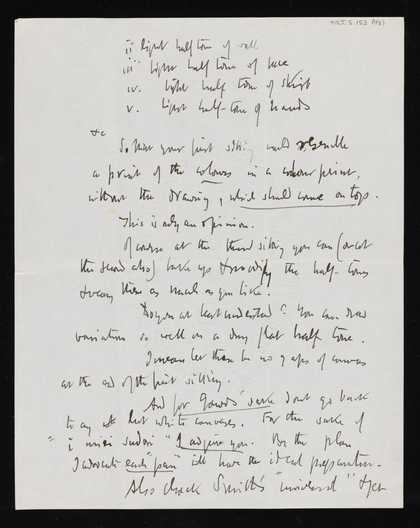 ii light half tone of wall
iii lighter half tone of face
iv. light half tone of skirt
v. light half-tone of hands
&c
So that your first sitting would resemble
a print of the colours in a colour print,
without the drawing, which should come on top.
This is only an opinion.
Of course at the third sitting you can (or at
the second also) take up & modify the half-tones
& vary them as much as you like.
Do you at last understand? You can draw
variations as well on a dry flat half tone.
I mean let there be no gaps of canvas
at the end of the first sitting.
And for God's sake don't go back
to any but white canvases. For the sake of
"i miei sudori" I adjure you. By the plan
I advocate each "pan" will have the ideal preparation.
Also chuck Smith's